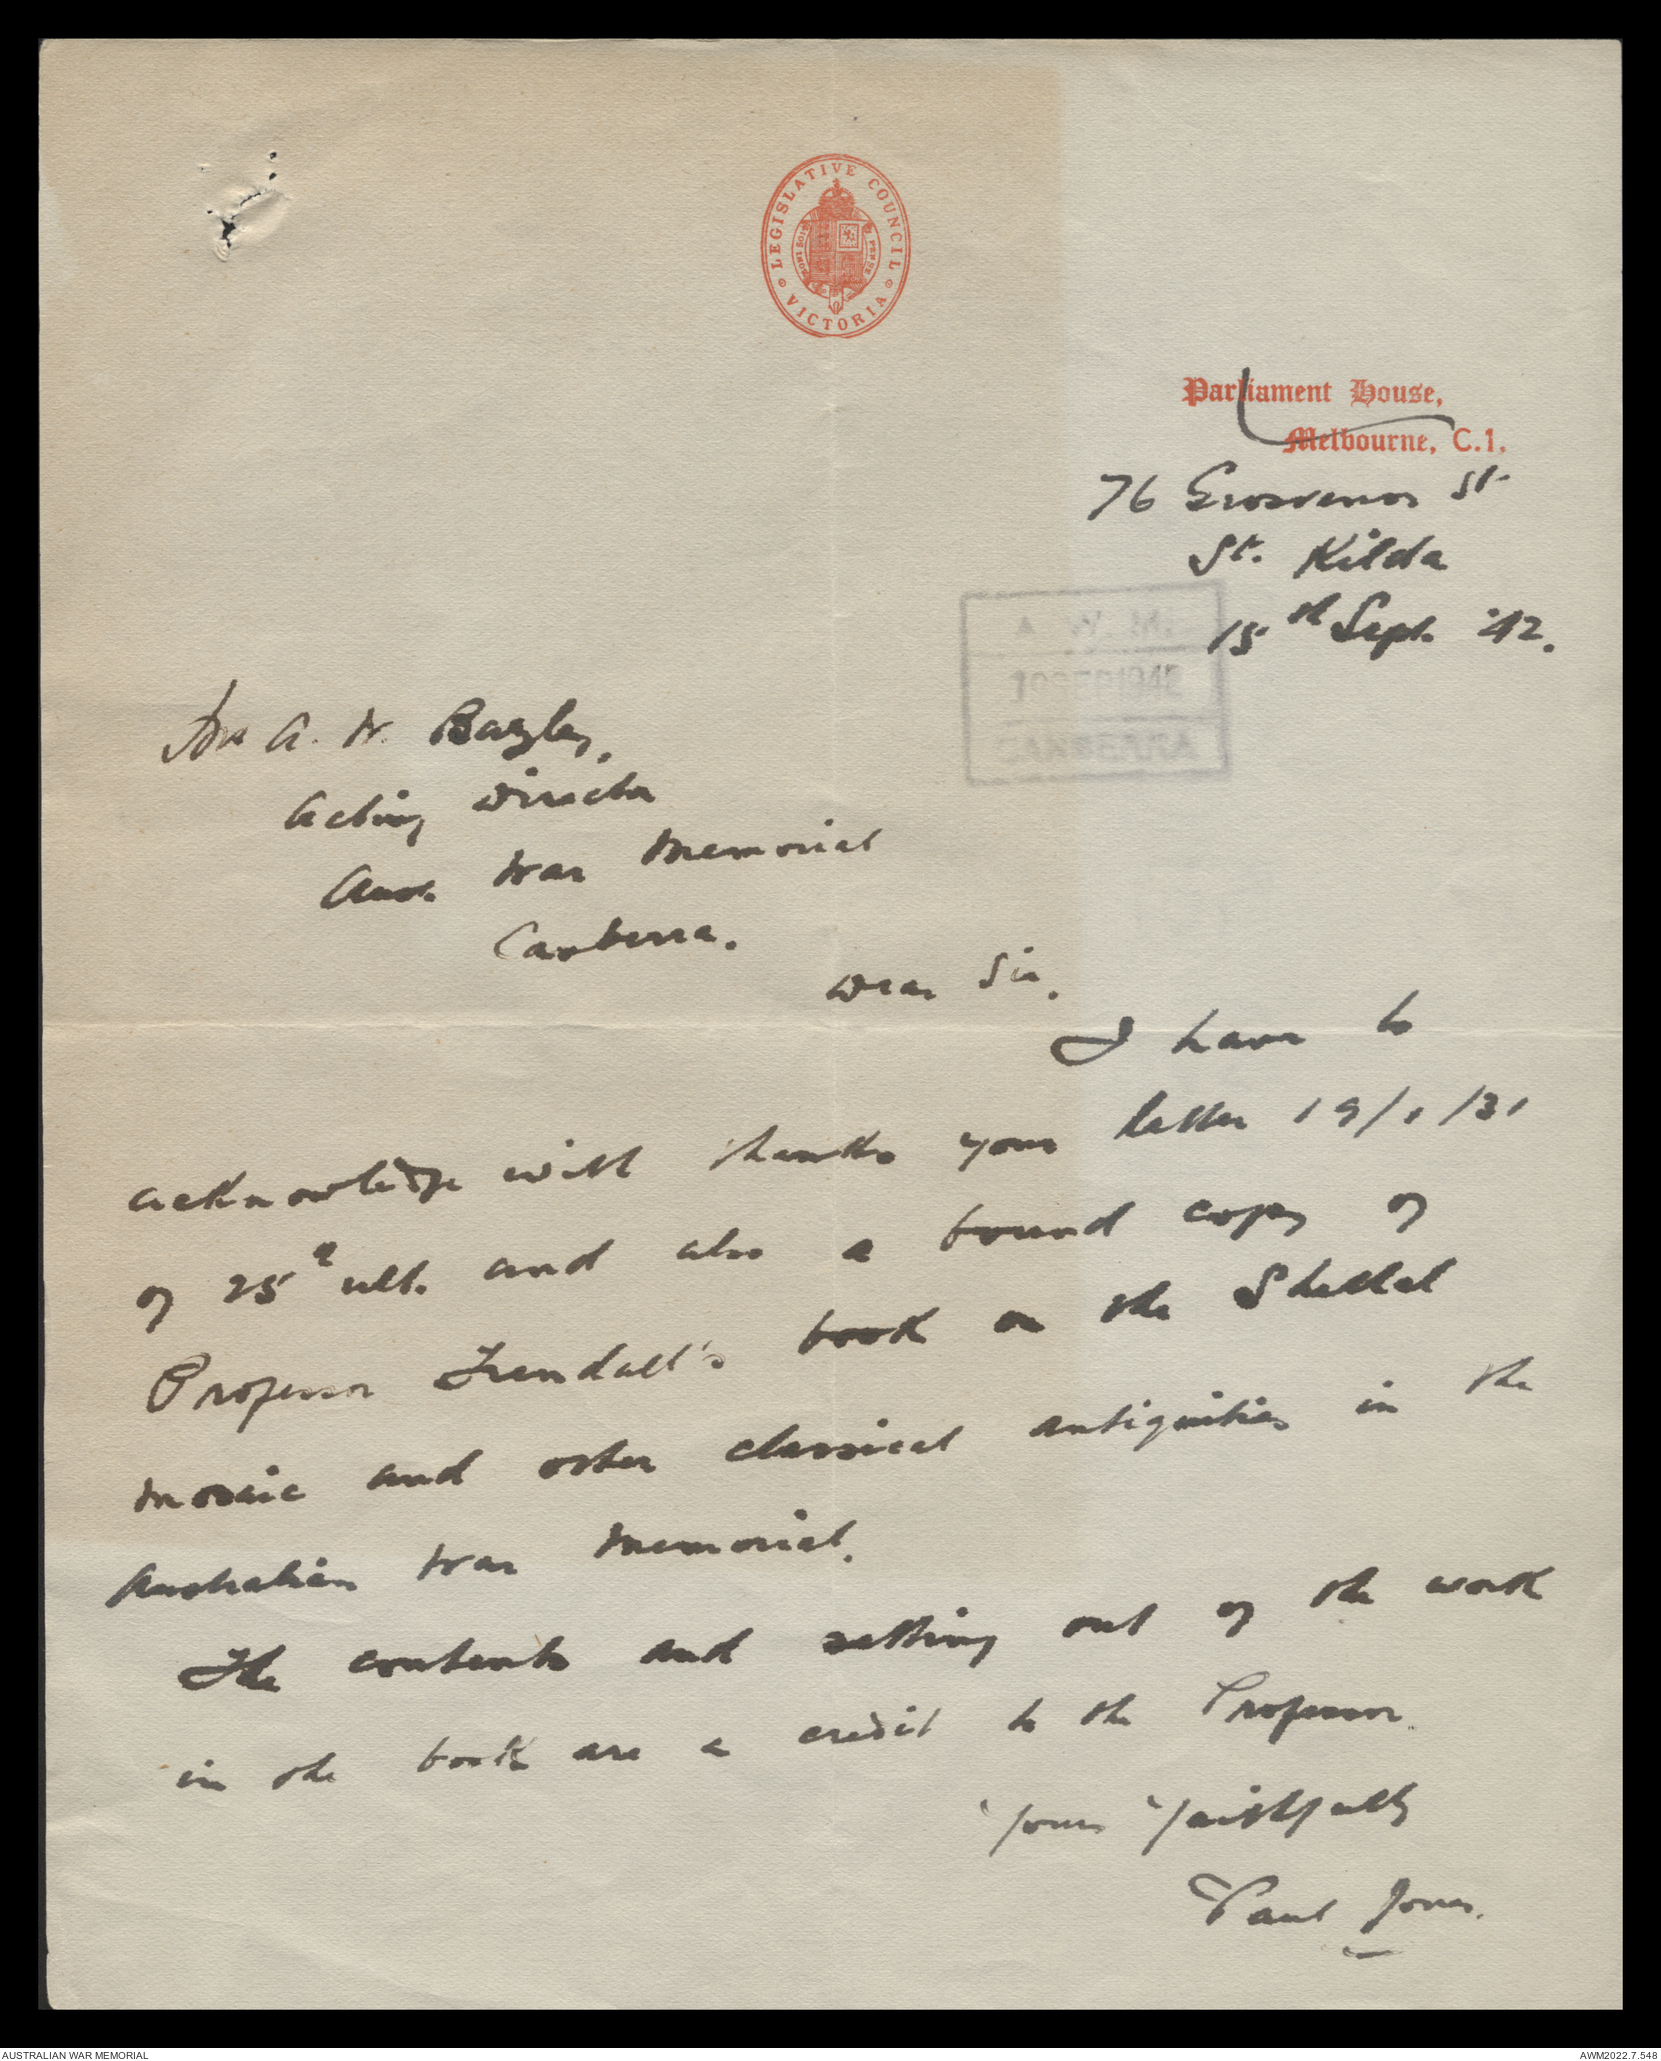 LEGISLATIVE COUNCIL
VICTORIA
HONI SOIT
PENSE
Parliament House,
Melbourne, C.1.
76 Grosvenor St
St. Kilda
15th Sept. '42.
A. W. M.
SEP 1942
CANBERRA
Mr A. W. Bazley,
Acting Director
Aus. War Memorial
Canberra.
Dear Sir.
I have to
acknowledge with thanks your letter 19/1/31
of 25th ult. and also a bound copy of
Professor Trendall's book on the Shellal
mosaic and other classical antiquities in the
Australian War Memorial.
The contents and setting out of the work
in the book are a credit to the Professor.
Yours faithfully
Paul Jones.
AUSTRALIAN WAR MEMORIAL
AWM2022.7.548